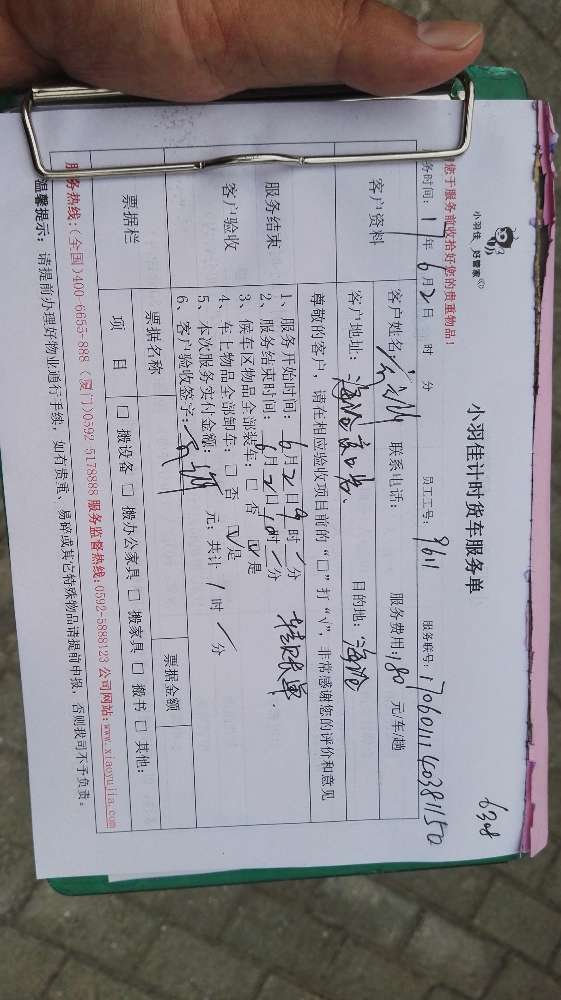 小羽佳 好管家
小羽佳计时货车服务单
6308
您于服务前收拾好您的贵重物品！
务时间：17年6月2日 时 分 员工工号：9611 服务账号：1706011140381150
客户资料 客户姓名： 联系电话： 服务费用：180 元/车/趟
客户地址：海沧 目的地：海沧
尊敬的客户，请在相应验收项目前的“□”打“√”，非常感谢您的评价和意见
服务结束
客户验收
1、服务开始时间：6月2日9时/分
2、服务结束时间：6月2日10时/分 转账单
3、候车区物品全部装车：□ 否 ☑ 是
4、车上物品全部卸车：□ 否 ☑ 是
5、本次服务实付金额： 元；共计 1 时 / 分
6、客户验收签字：
票据栏 票据名称 票据金额
项 目 □ 搬设备 □ 搬办公家具 □ 搬家具 □ 搬书 □ 其他：
服务热线：(全国)400-6655-888 (厦门)0592-5178888 服务监督热线:0592-5888123 公司网站:www.xiaoyujia.com
温馨提示：请提前办理好物业通行手续；如有贵重、易碎或其它特殊物品请提前申报，否则我司不予负责。